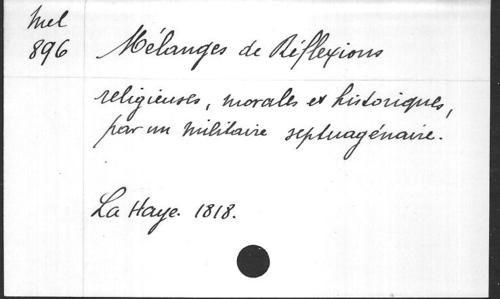 Mel
896
Mélanges de Réflexions
religieuses, morales et historiques,
par un militaire septuagénaire.
La Haye. 1818.